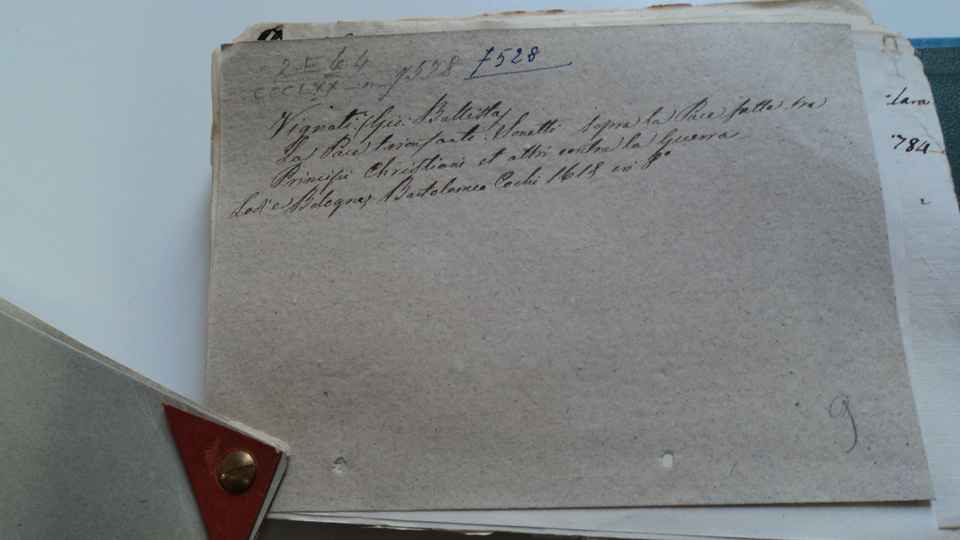 2 I 64 7528 7528
CCCLXX
Vignati (Gio. Battista)
La Pace trionfante. Sonetti sopra la Pace fatta tra
Principi Christiani et altri contra la Guerra
Lodi e Bologna, Bartolomeo Cochi 1618 in 8º
9
lara
784